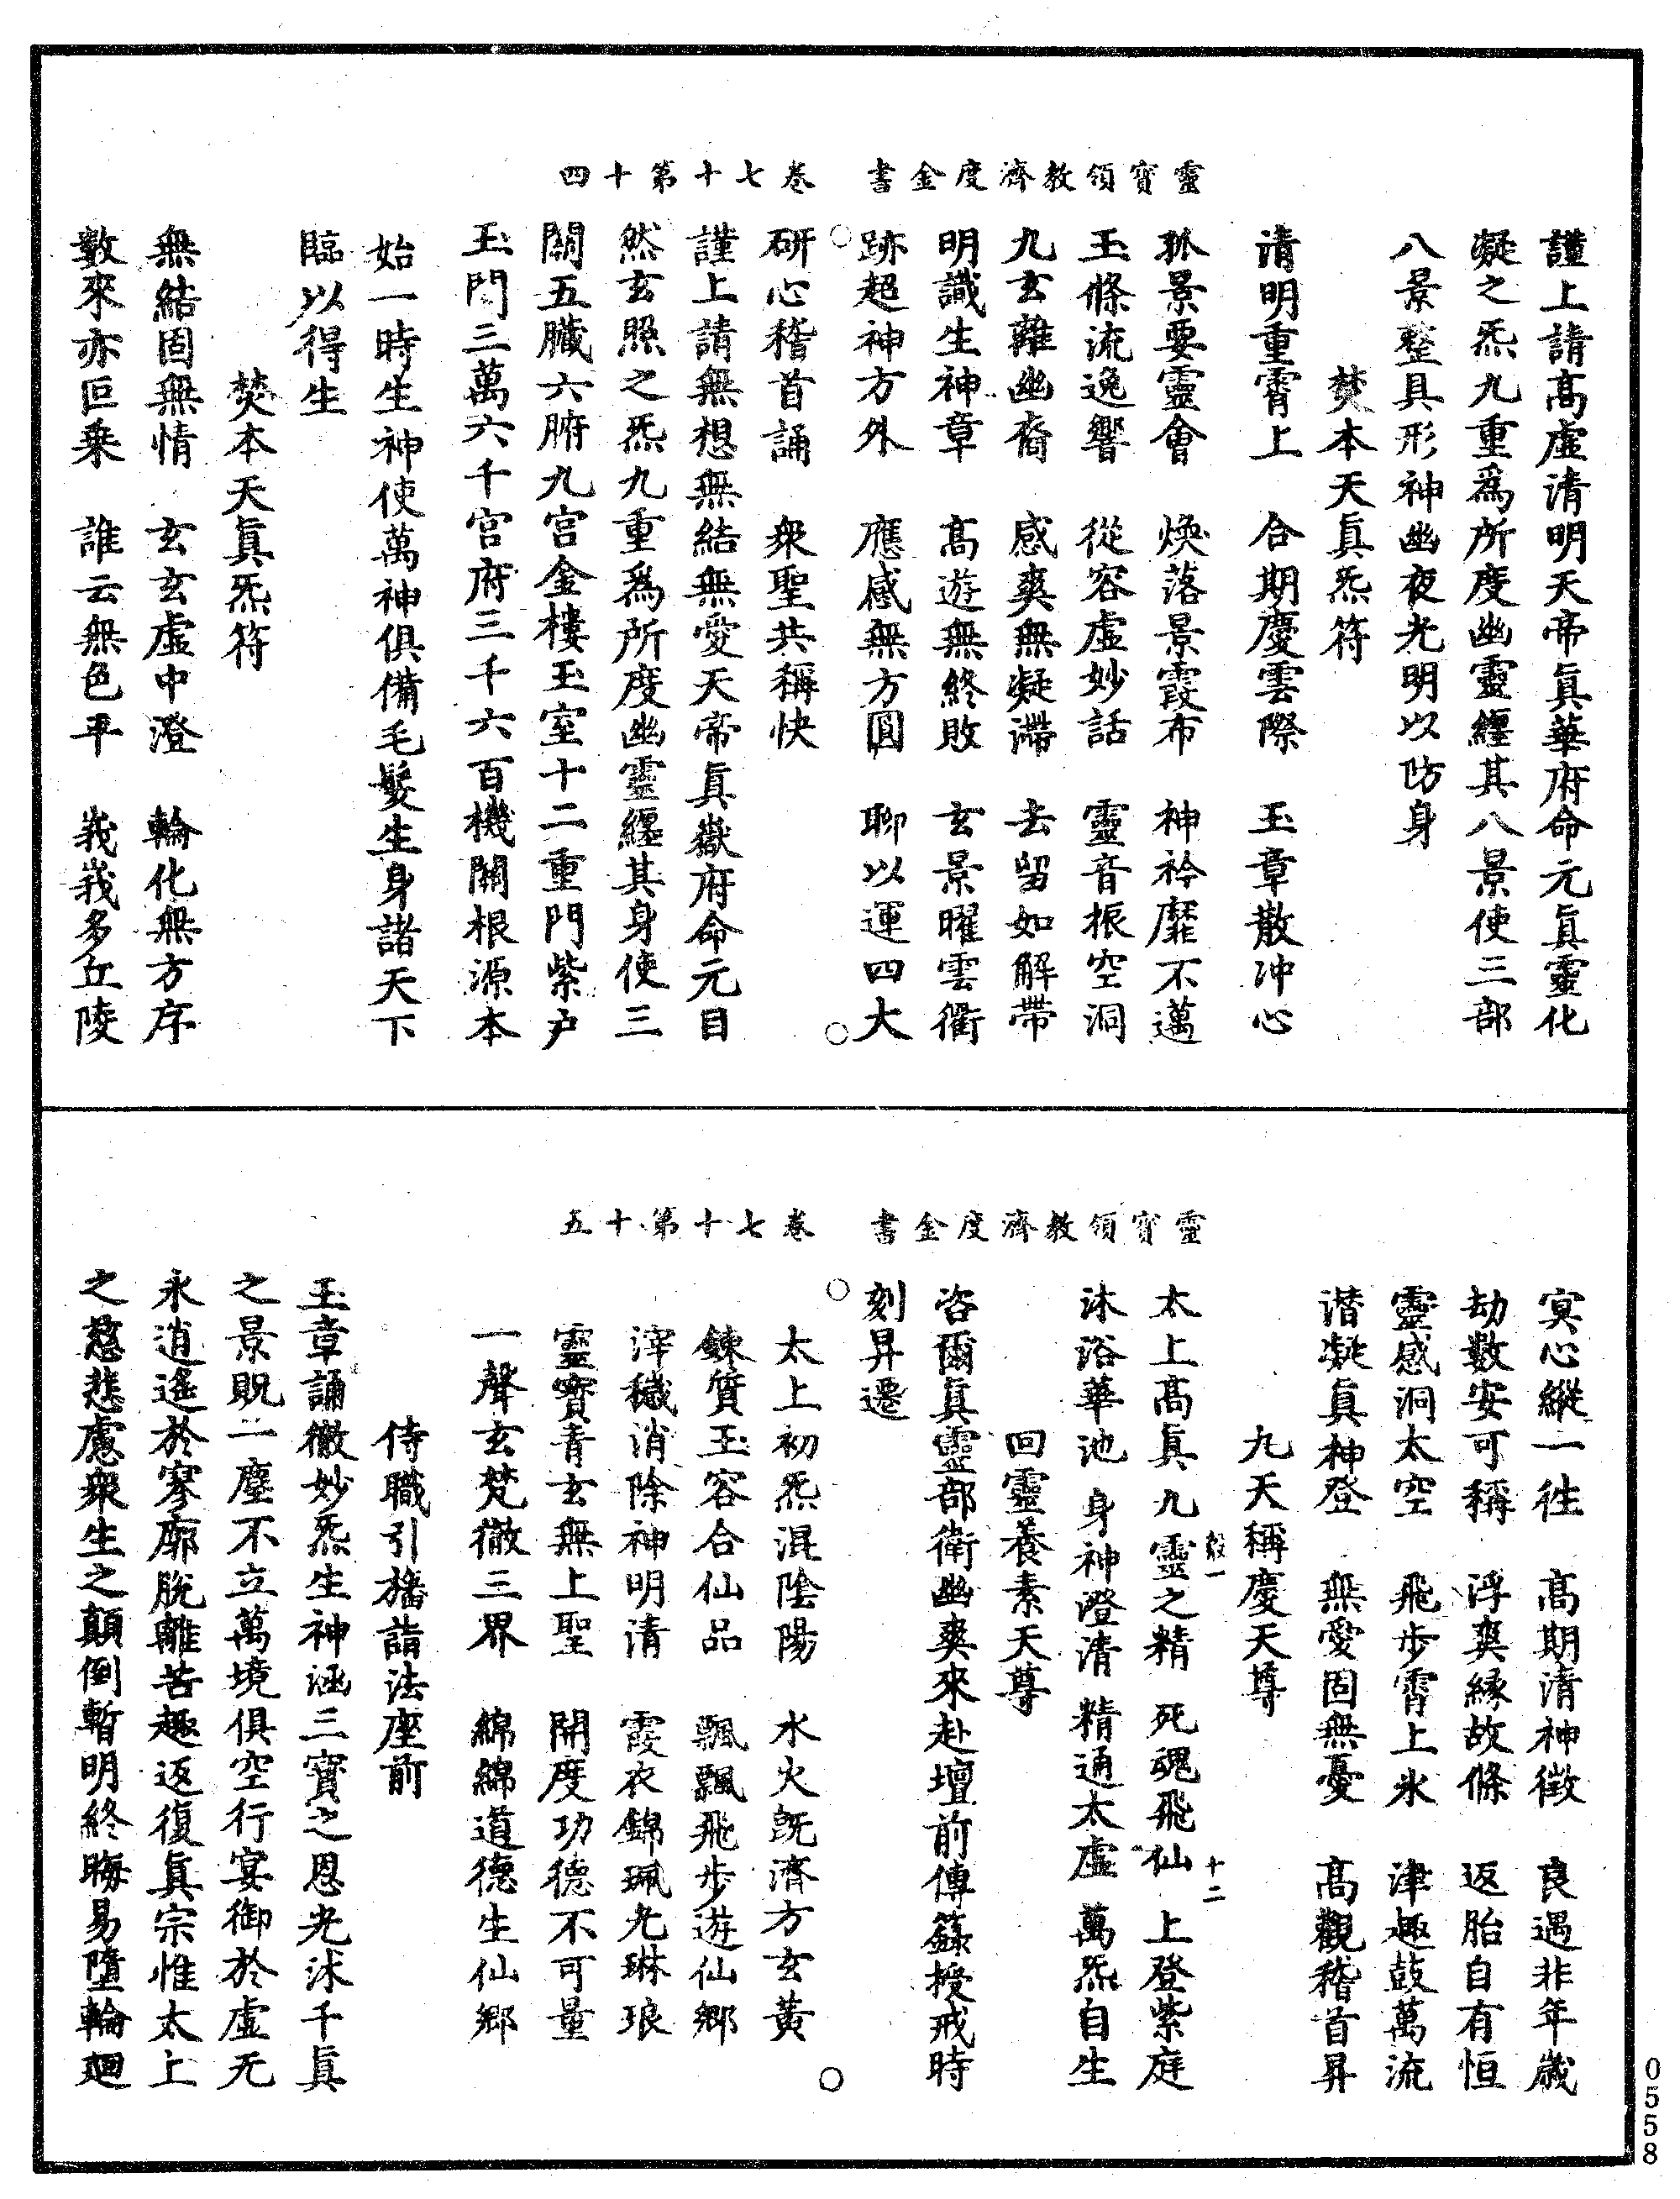 靈寶領教濟度金書　卷七十第十四
謹上請高虛清明天帝眞華府命元眞靈化
凝之炁九重爲所度幽靈纏其八景使三部
八景整具形神幽夜光明以防身
焚本天眞炁符
清明重霄上　合期慶雲際　玉章散沖心
孤景要靈會　煥落景霞布　神衿靡不邁
玉條流逸響　從容虛妙話　靈音振空洞
九玄離幽裔　感爽無凝滯　去留如解帶
明識生神章　高遊無終敗　玄景曜雲衢
跡超神方外　應感無方圓　聊以運四大
研心稽首誦　衆聖共稱快
謹上請無想無結無愛天帝眞嶽府命元目
然玄照之炁九重爲所度幽靈纏其身使三
關五臟六腑九宮金樓玉室十二重門紫户
玉門三萬六千宮府三千六百機關根源本
始一時生神使萬神俱備毛髮生身諸天下
臨以得生
焚本天眞炁符
無結固無情　玄玄虛中澄　輪化無方序
數來亦叵乗　誰云無色平　峩峩多丘陵
靈寶領教濟度金書　卷七十第十五
冥心縱一徃　高期清神徴　良遇非年歲
劫數安可稱　浮爽縁故條　返胎自有恒
靈感洞太空　飛步霄上氷　津趣鼓萬流
潛凝眞神登　無愛固無憂　高觀稽首昇
九天稱慶天尊
十二
太上高眞九靈之精　死魂飛仙　上登紫庭
沐浴華池　身神澄清　精通太虛　萬炁自生
回靈養素天尊
咨爾眞靈部衛幽爽來赴壇前傳籙授戒時
刻昇遷
太上初炁混陰陽　水火既濟方玄黃
鍊質玉容合仙品　飄飄飛步遊仙鄉
滓穢消除神明清　霞衣錦珮光琳琅
靈寶青玄無上聖　開度功德不可量
一聲玄梵徹三界　綿綿道德生仙鄉
侍職引旛詣法座前
玉章誦徹妙炁生神涵三寶之恩光沭千眞
之景貺一塵不立萬境俱空行宴御於虛无
永逍遙於寥廓脫離苦趣返復眞宗惟太上
之慈悲慮衆生之顛倒暫明終晦易墮輪廻
0558